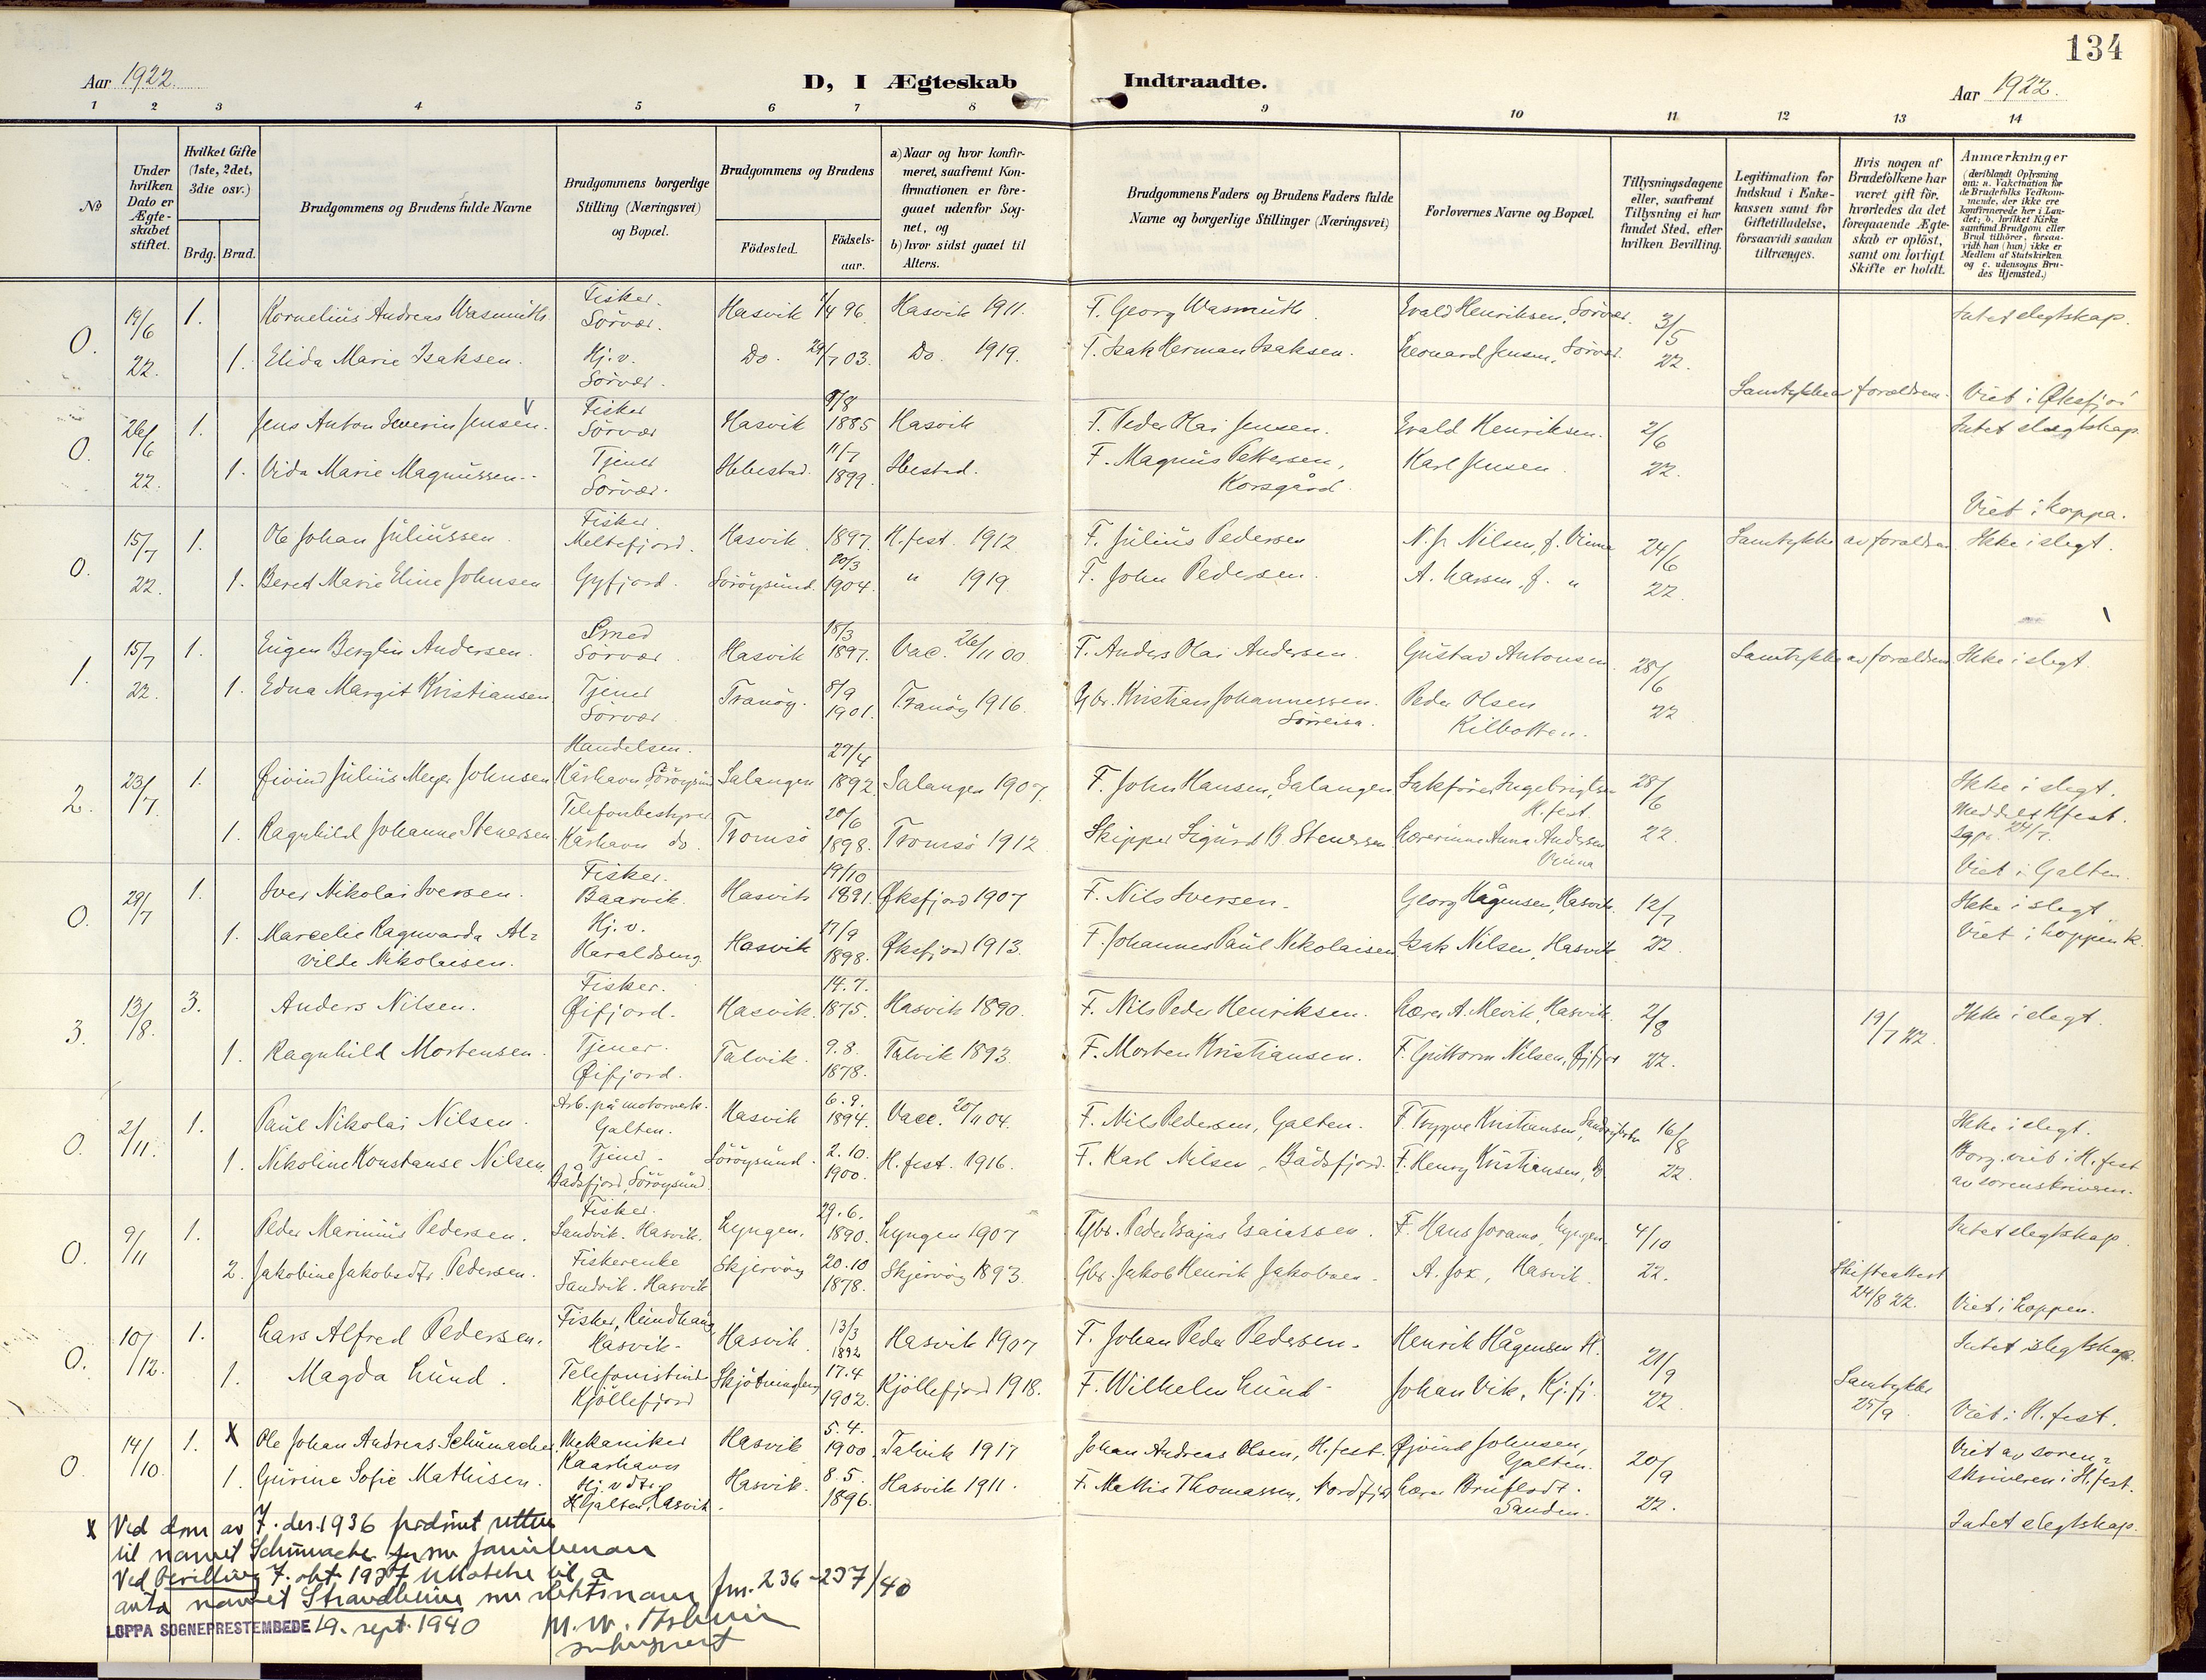 134
Aar 1922.
D, I Ægteskab Indtraadte.
Aar 1922.
1 2 3 4 5 6 7 8 9 10 11 12 13 14
No
Under hvilken Dato er Ægteskabet stiftet.
Hvilket Gifte (1ste, 2det, 3die osv.)
Brdg. Brud.
Brudgommens og Brudens fulde Navne
Brudgommens borgerlige Stilling (Næringsvei) og Bopæl.
Brudgommens og Brudens
Födested.
Födselsaar.
a) Naar og hvor konfirmeret, saafremt Konfirmationen er foregaaet udenfor Sognet, og
b) hvor sidst gaaet til Alters.
Brudgommens Faders og Brudens Faders fulde Navne og borgerlige Stillinger (Næringsvei)
Forlovernes Navne og Bopæl.
Tillysningsdagene eller, saafremt Tillysning ei har fundet Sted, efter hvilken Bevilling.
Legitimation for Indskud i Enkekassen samt for Giftetilladelse, forsaavidt saadan tiltrænges.
Hvis nogen af Brudefolkene har været gift för, hvorledes da det foregaaende Ægteskab er oplöst, samt om lovligt Skifte er holdt.
Anmærkninger (deriblandt Oplysning om: a. Vakcination for de Brudefolks Vedkommende, der ikke ere konfirmerede her i Landet; b. hvilket Kirkesamfund Brudgom eller Brud tilhörer, forsaavidt han (hun) ikke er Medlem af Statskirken og c. udensogns Brudes Hjemsted.)
0. 19/6 22. 1. Kornelius Andreas Wasmuth. Fisker. Sörvær. Hasvik 1/4 96. Hasvik 1911. F. Georg Wasmuth. Evald Henriksen, Sörvær. 3/5 22. Intet slegtskap.
1. Elida Marie Isaksen. Hj. v. Sörvær. Do. 29/7 03. Do. 1919. F. Isak Herman Isaksen. Leonard Jensen, Sörvær.
Samtykke av forældrene. Viet i Øksfjor
0. 26/6 22. 1. Jens Anton Severin Jensen. Fisker Sörvær Hasvik 9/8 1885 Hasvik F. Peder Olai Jensen. Evald Henriksen. 2/6 22. Intet slegtskap.
1. Vida Marie Magnussen. Tjener Sörvær. Ibbestad. 11/7 1899. Ibestad. F. Magnus Pettersen, Korsgård. Karl Jensen.
Viet i Loppa.
0. 15/7 22. 1. Ole Johan Juliussen. Fisker Meltefjord. Hasvik 1897. H.fest. 1912 F. Julius Pedersen N. Jr Nilsen, f. 24/6 22. Samtykke av forældre. Ikke i slegt.
1. Bered Marie Eline Johnsen Gyfjord. Söröysund. 20/3 1904. " 1919. F. John Pedersen. A. Larsen, f. "
1. 15/7 22. 1. Eugen Berglin Andersen. Smed Sörvær. Hasvik 18/3 1897. Vac. 26/11 00. F. Anders Olai Andersen. Gustav Antonsen. 28/6 22 Samtykke av forældrene Ikke i slegt.
1. Edna Margit Kristiansen. Tjener Sörvær Tranöy. 8/9 1901. Tranöy 1916. Gbr. Kristian Johannessen. Sörreisa. Peder Olsen Kilbotten.
2. 23/7. 1. Øivind Julius Meyer Johnsen Handelsm. Kårhavn, Söröysund Salangen 27/4 1892. Salangen 1907. F. John Hansen, Salangen Sakförer Ingebrigtsen H.fest. 28/6 22. Ikke i slegt. Meddelt Hfest. sgpr. 24/7.
1. Ragnhild Johanne Stenersen. Telefonbestyrer Kårhavn do. Tromsö 20/6 1898. Tromsö 1912 Skipper Sigurd B. Stenersen Lærerinne Anna Andersen
Viet i Galten.
0. 29/7 1. Iver Nikolai Iversen. Fisker. Baarvik. Hasvik 19/10 1891. Øksfjord 1907 F. Nils Iversen. Georg Hågensen, Hasvik. 12/7 22. Ikke i slegt.
1. Marcelie Ragnvarda Alvilde Nikolaisen. Hj. v. Haraldseng. Hasvik 17/9 1898. Øksfjord 1913. F. Johannes Paul Nikolaisen Isak Nilsen, Hasvik Viet i Loppen k.
3. 13/8. 3. Anders Nilsen. Fisker. Øifjord. Hasvik. 14.7. 1875. Hasvik 1890. F. Nils Peder Henriksen. Lærer A. Mevik, Hasvik. 2/8 22. 19/7 22. Ikke i slegt.
1. Ragnhild Mortensen. Tjener. Øifjord. Talvik. 9.8. 1878. Talvik 1893. F. Morten Kristiansen. F. Guttorm Nilsen, Øifjord
0. 2/11. 1. Paul Nikolai Nilsen. Arb. på motorverk. Galten. Hasvik 6.9. 1894. Vacc. 20/11 04. F. Nils Pedersen, Galten. F. Trygve Kristiansen, 16/8 22. Ikke i slegt.
1. Nikoline Konstanse Nilsen. Tjener. Bådsfjord, Söröysund. Söröysund. 2.10. 1900. H.fest. 1916. F. Karl Nilsen, Bådsfjord. F. Henry Kristiansen, Borg. viet i H.fest av sorenskriveren.
0. 9/11 1. Peder Marinius Pedersen. Fisker. Sandvik. Hasvik. Lyngen. 29.6. 1890. Lyngen 1907 Gbr. Peder Esajas Esaiassen. F. Hans Joramo, Lyngen. 4/10 22. Intet slegtskap.
2. Jakobine Jakobsdtr. Pedersen. Fiskerenke Sandvik. Hasvik Skjervöy 20.10 1878. Skjervöy 1893. Gbr. Jakob Henrik Jakobsen. A. Fox, Hasvik. Skifteattest 24/8 22. Viet i Loppen.
0. 10/12. 1. Lars Alfred Pedersen. Fisker, Hasvik. Hasvik. 13/3 1892 Hasvik 1907 F. Johan Peder Pedersen. Henrik Hågensen H. 21/9 22 Intet slegtskap.
1. Magda Lund. Telefonistinde Kjöllefjord Skjötningberg 17.4 1902. Kjöllefjord 1918. F. Wilhelm Lund. Johan Vik, Kj.fj. Samtykke 25/9. Viet i H.fest.
0. 14/10. 1. X Ole Johan Andreas Schumacher, Mekaniker Kaarhavn Hasvik 5.4. 1900. Talvik 1917 Johan Andreas Olsen, H.fest. Øjvind Johnsen, Galten. 20/9 22. Viet av sorenskriveren i H.fest.
1. Gurine Sofie Mathisen. Hj. v. dtr. Galten, Hasvik. Hasvik. 8.5. 1896. Hasvik 1911. F. Mathis Thomassen, Nordfjord Lærer Bruflodt. Sanden.
Intet slegtskap.
X Ved dom av 7. des. 1936 fradömt retten
til navnet Schumacher som familienavn
Ved bevilling 7. okt. 1937 til å
anta navnet Strandheim som slektsnavn jnr. 236-237/40
LOPPA SOGNEPRESTEMBEDE 19. sept. 1940
sokneprest